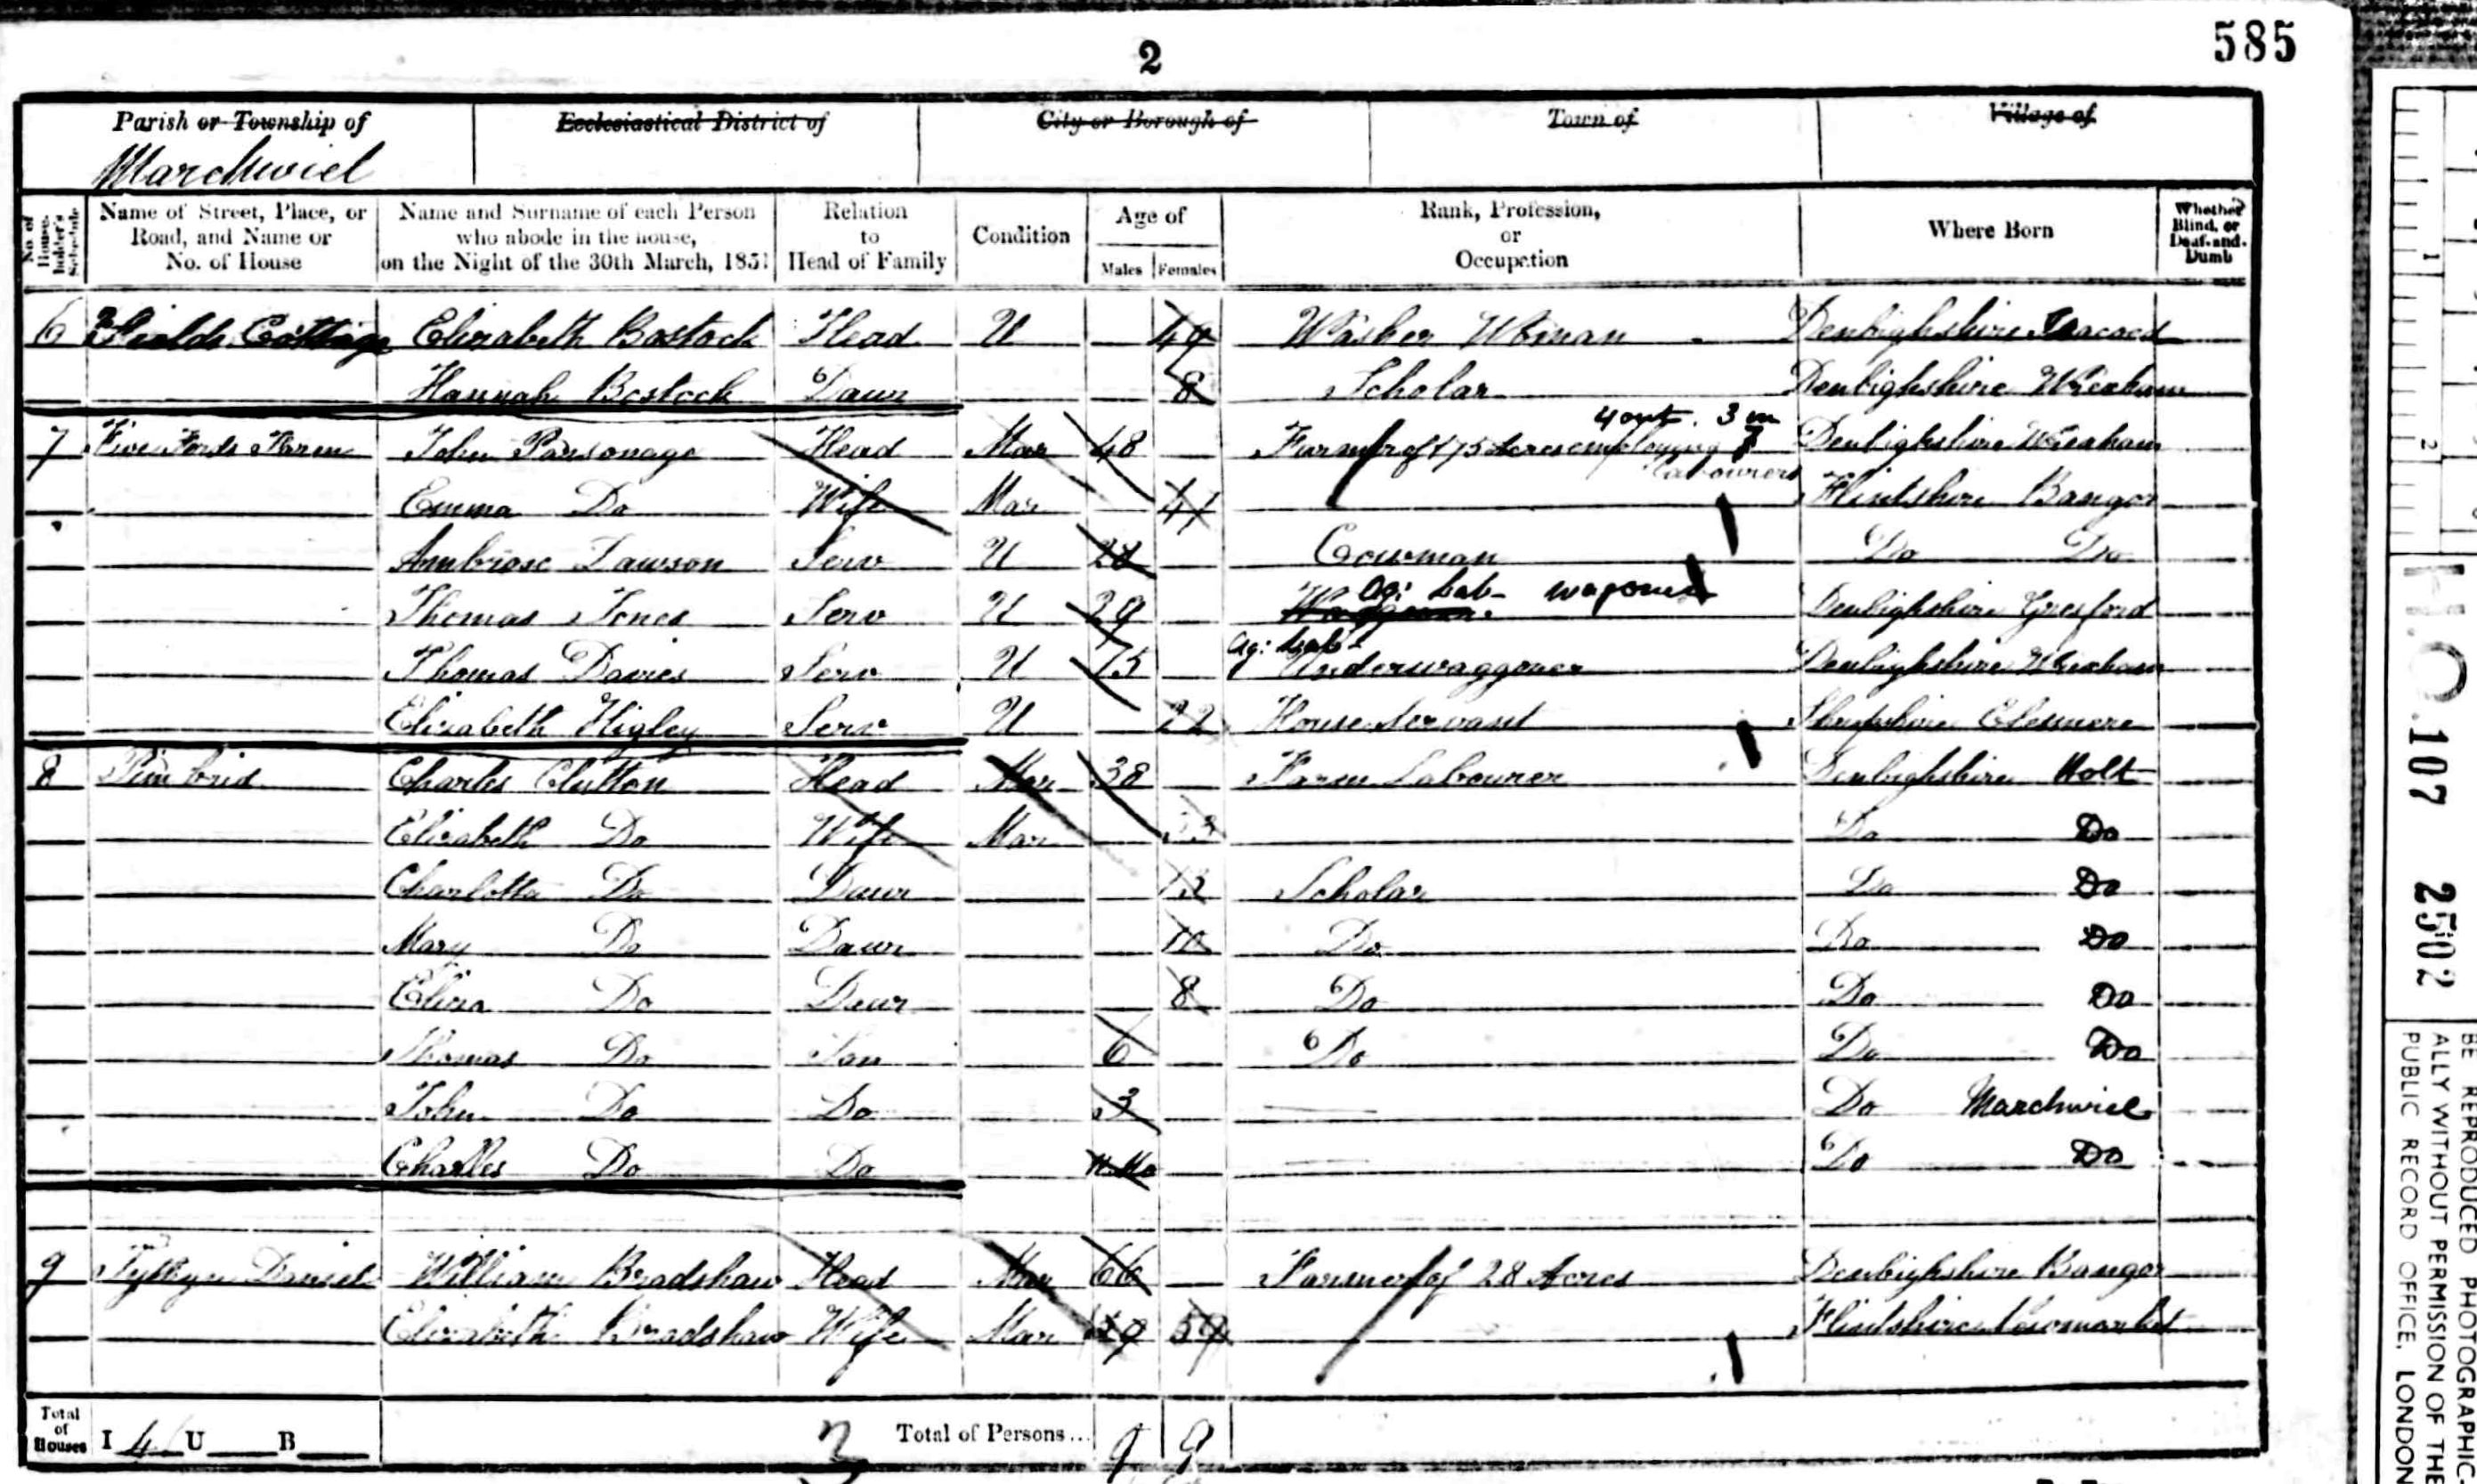 585
2
Parish or Township of
Ecclesiastical District of
City or Borough of
Town of
Village of
Marchwiel
No. of House-holder's Schedule
Name of Street, Place, or Road, and Name or No. of House
Name and Surname of each Person who abode in the house, on the Night of the 30th March, 1851
Relation to Head of Family
Condition
Age of
Males Females
Rank, Profession, or Occupation
Where Born
Whether Blind, or Deaf-and-Dumb
6 Fields Cottage Elizabeth Bostock Head U 49 Washer Woman Denbighshire
Hannah Bostock Daur 8 Scholar Denbighshire Wrexham
4 out. 3 in
7 Five Fords Farm John Parsonage Head Mar 48 Farmer of 175 Acres employing 7 Labourers Denbighshire Wrexham
Emma Do Wife Mar 41 Flintshire Bangor
Ambrose Dawson Serv U 28 Cowman Do Do
Thomas Jones Serv U 29 Ag: Lab- waponer Denbighshire Gresford
Thomas Davies Serv U 15 Ag: Lab- Underwaggoner Denbighshire Wrexham
Elizabeth Higley Serv U 22 House Servant Shropshire Elesmere
8 Charles Clutton Head Mar 38 Farm Labourer Denbighshire Holt
Elizabeth Do Wife Mar 33 Do Do
Charlotta Do Daur Scholar Do Do
Mary Do Daur 10 Do Do Do
Eliza Do Daur 8 Do Do Do
Thomas Do Son 6 Do Do Do
John Do Do 3 Do Marchwiel
Charles Do Do Mo Do Do
9 Daniel William Bradshaw Head Mar 66 Farmer of 28 Acres Denbighshire Bangor
Elizabeth Bradshaw Wife Mar 59 59 Flintshire Newmarket
Total of Houses I 4 U B
Total of Persons... 9 9
H.O. 107 2502
BE REPRODUCED PHOTOGRAPHIC-
ALLY WITHOUT PERMISSION OF THE
PUBLIC RECORD OFFICE, LONDON